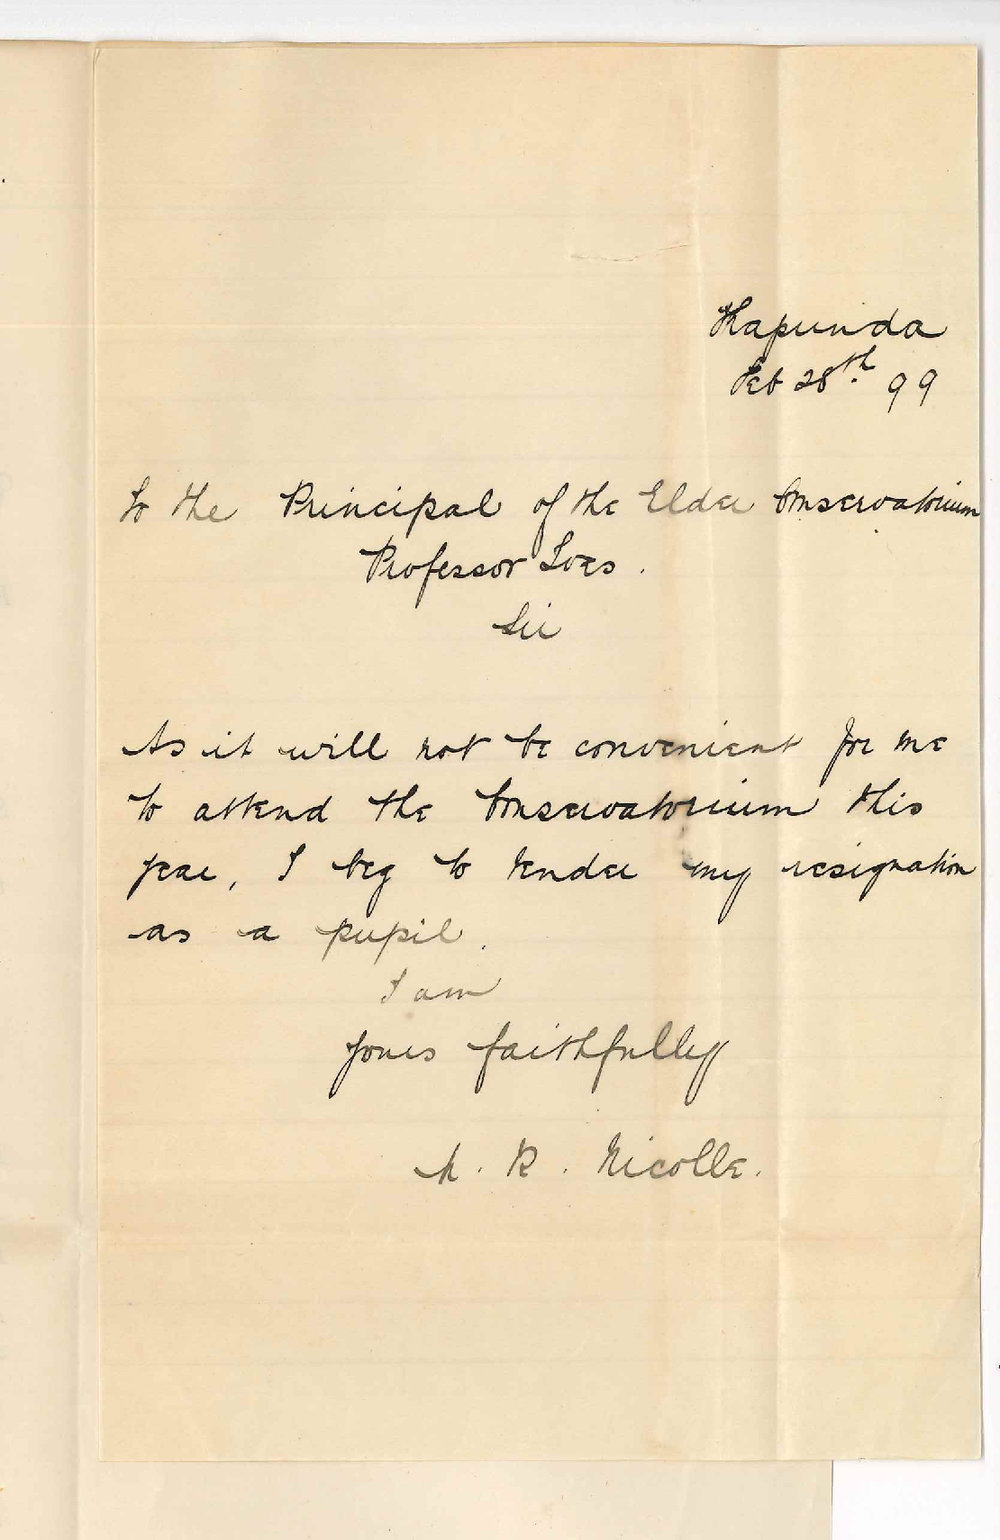 Kapunda
Feb 28th. 99
To the Principal of the Elder Conservatorium
Professor Ives.
Sir
As it will not be convenient for me
to attend the Conservatorium this
year, I beg to tender my resignation
as a pupil.
I am
Yours faithfully
A. R. Nicolle.